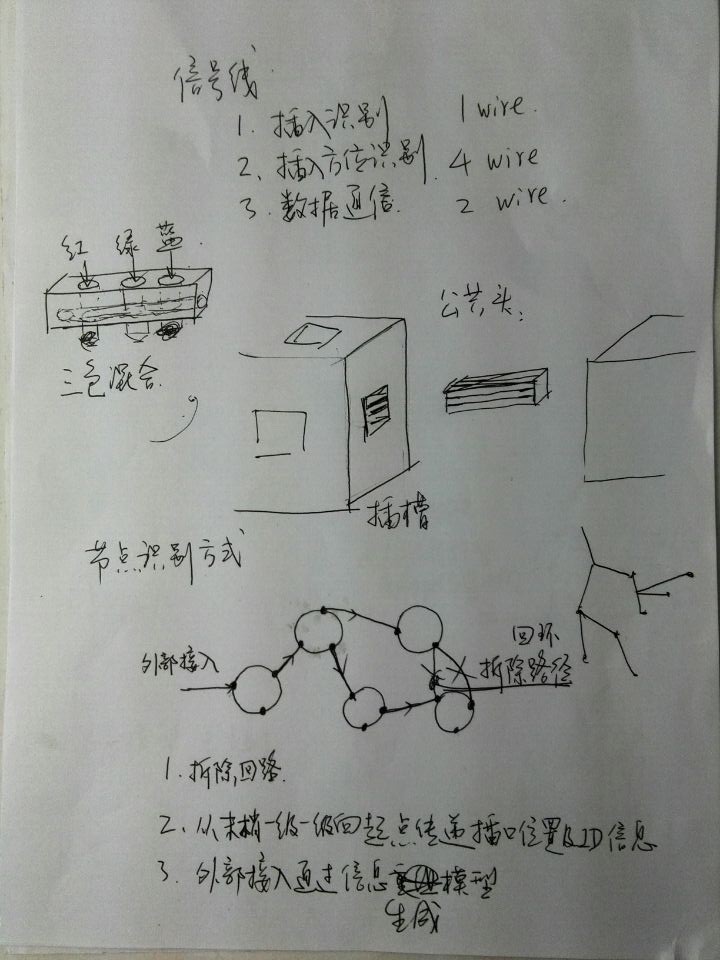 信号线
1. 插入识别 1 wire.
2、插入方位识别. 4 wire
3. 数据通信. 2 wire.
红 绿 蓝.
公共头:
三色混合.
插槽
节点识别方式
外部接入
回环
拆除路径
1. 拆除回路.
2、从末梢一级一级向起点传递插口位置及ID信息
3. 外部接入通过信息模型
生成